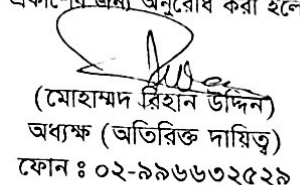 জন্য অনুরোধ করা হলো
(মোহাম্মদ রিহান উদ্দিন)
অধ্যক্ষ (অতিরিক্ত দায়িত্ব)
ফোন ঃ ০২-৯৯৬৬৩২৫২৯